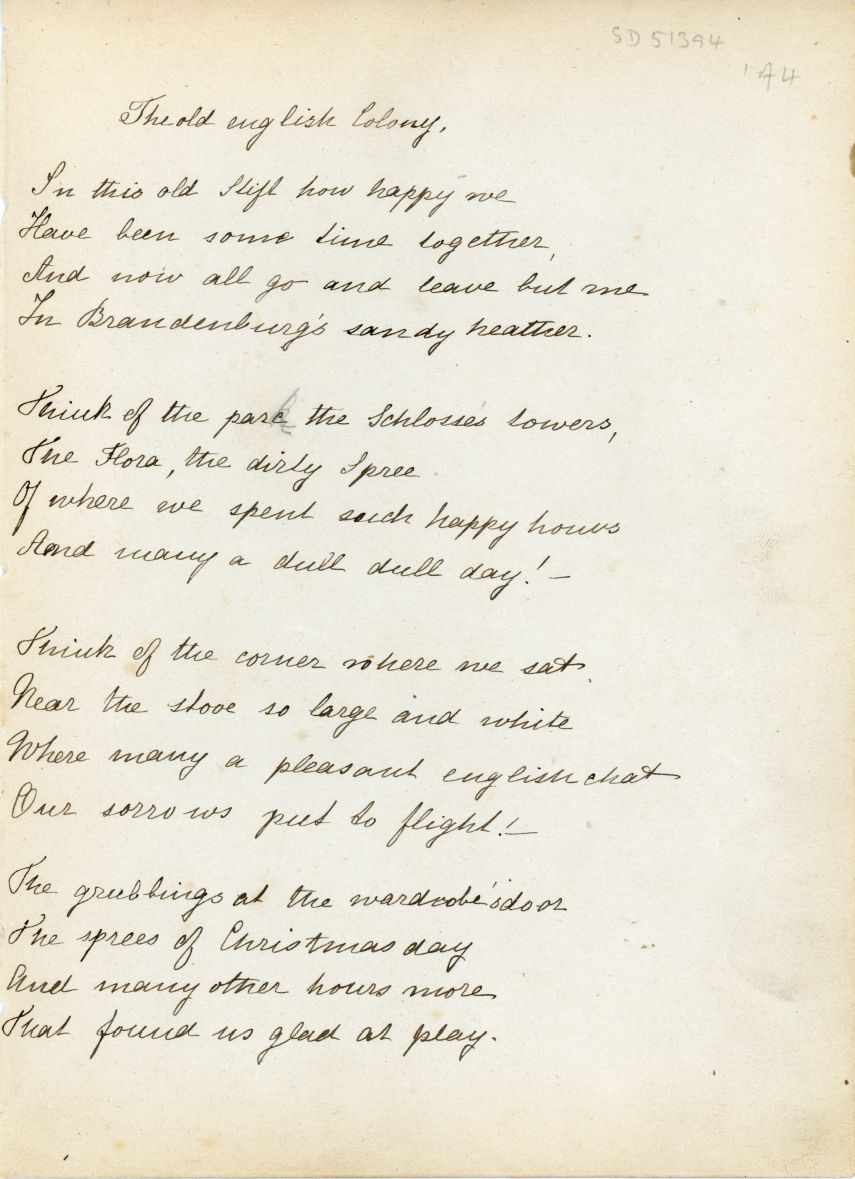 SD 51394
1 of 4
The old english Colony,
In this old Stift how happy we
Have been some time together,
And now all go and leave but me
In Brandenburg's sandy heather.
Think of the park the Schlosses towers,
The Flora, the dirty Spree
Of where we spent such happy hours
And many a dull dull day! –
Think of the corner where we sat
Near the stove so large and white
Where many a pleasant english chat
Our sorrows put to flight! –
The grubbings at the wardrobe's door
The sprees of Christmas day
And many other hours more
That found us glad at play.